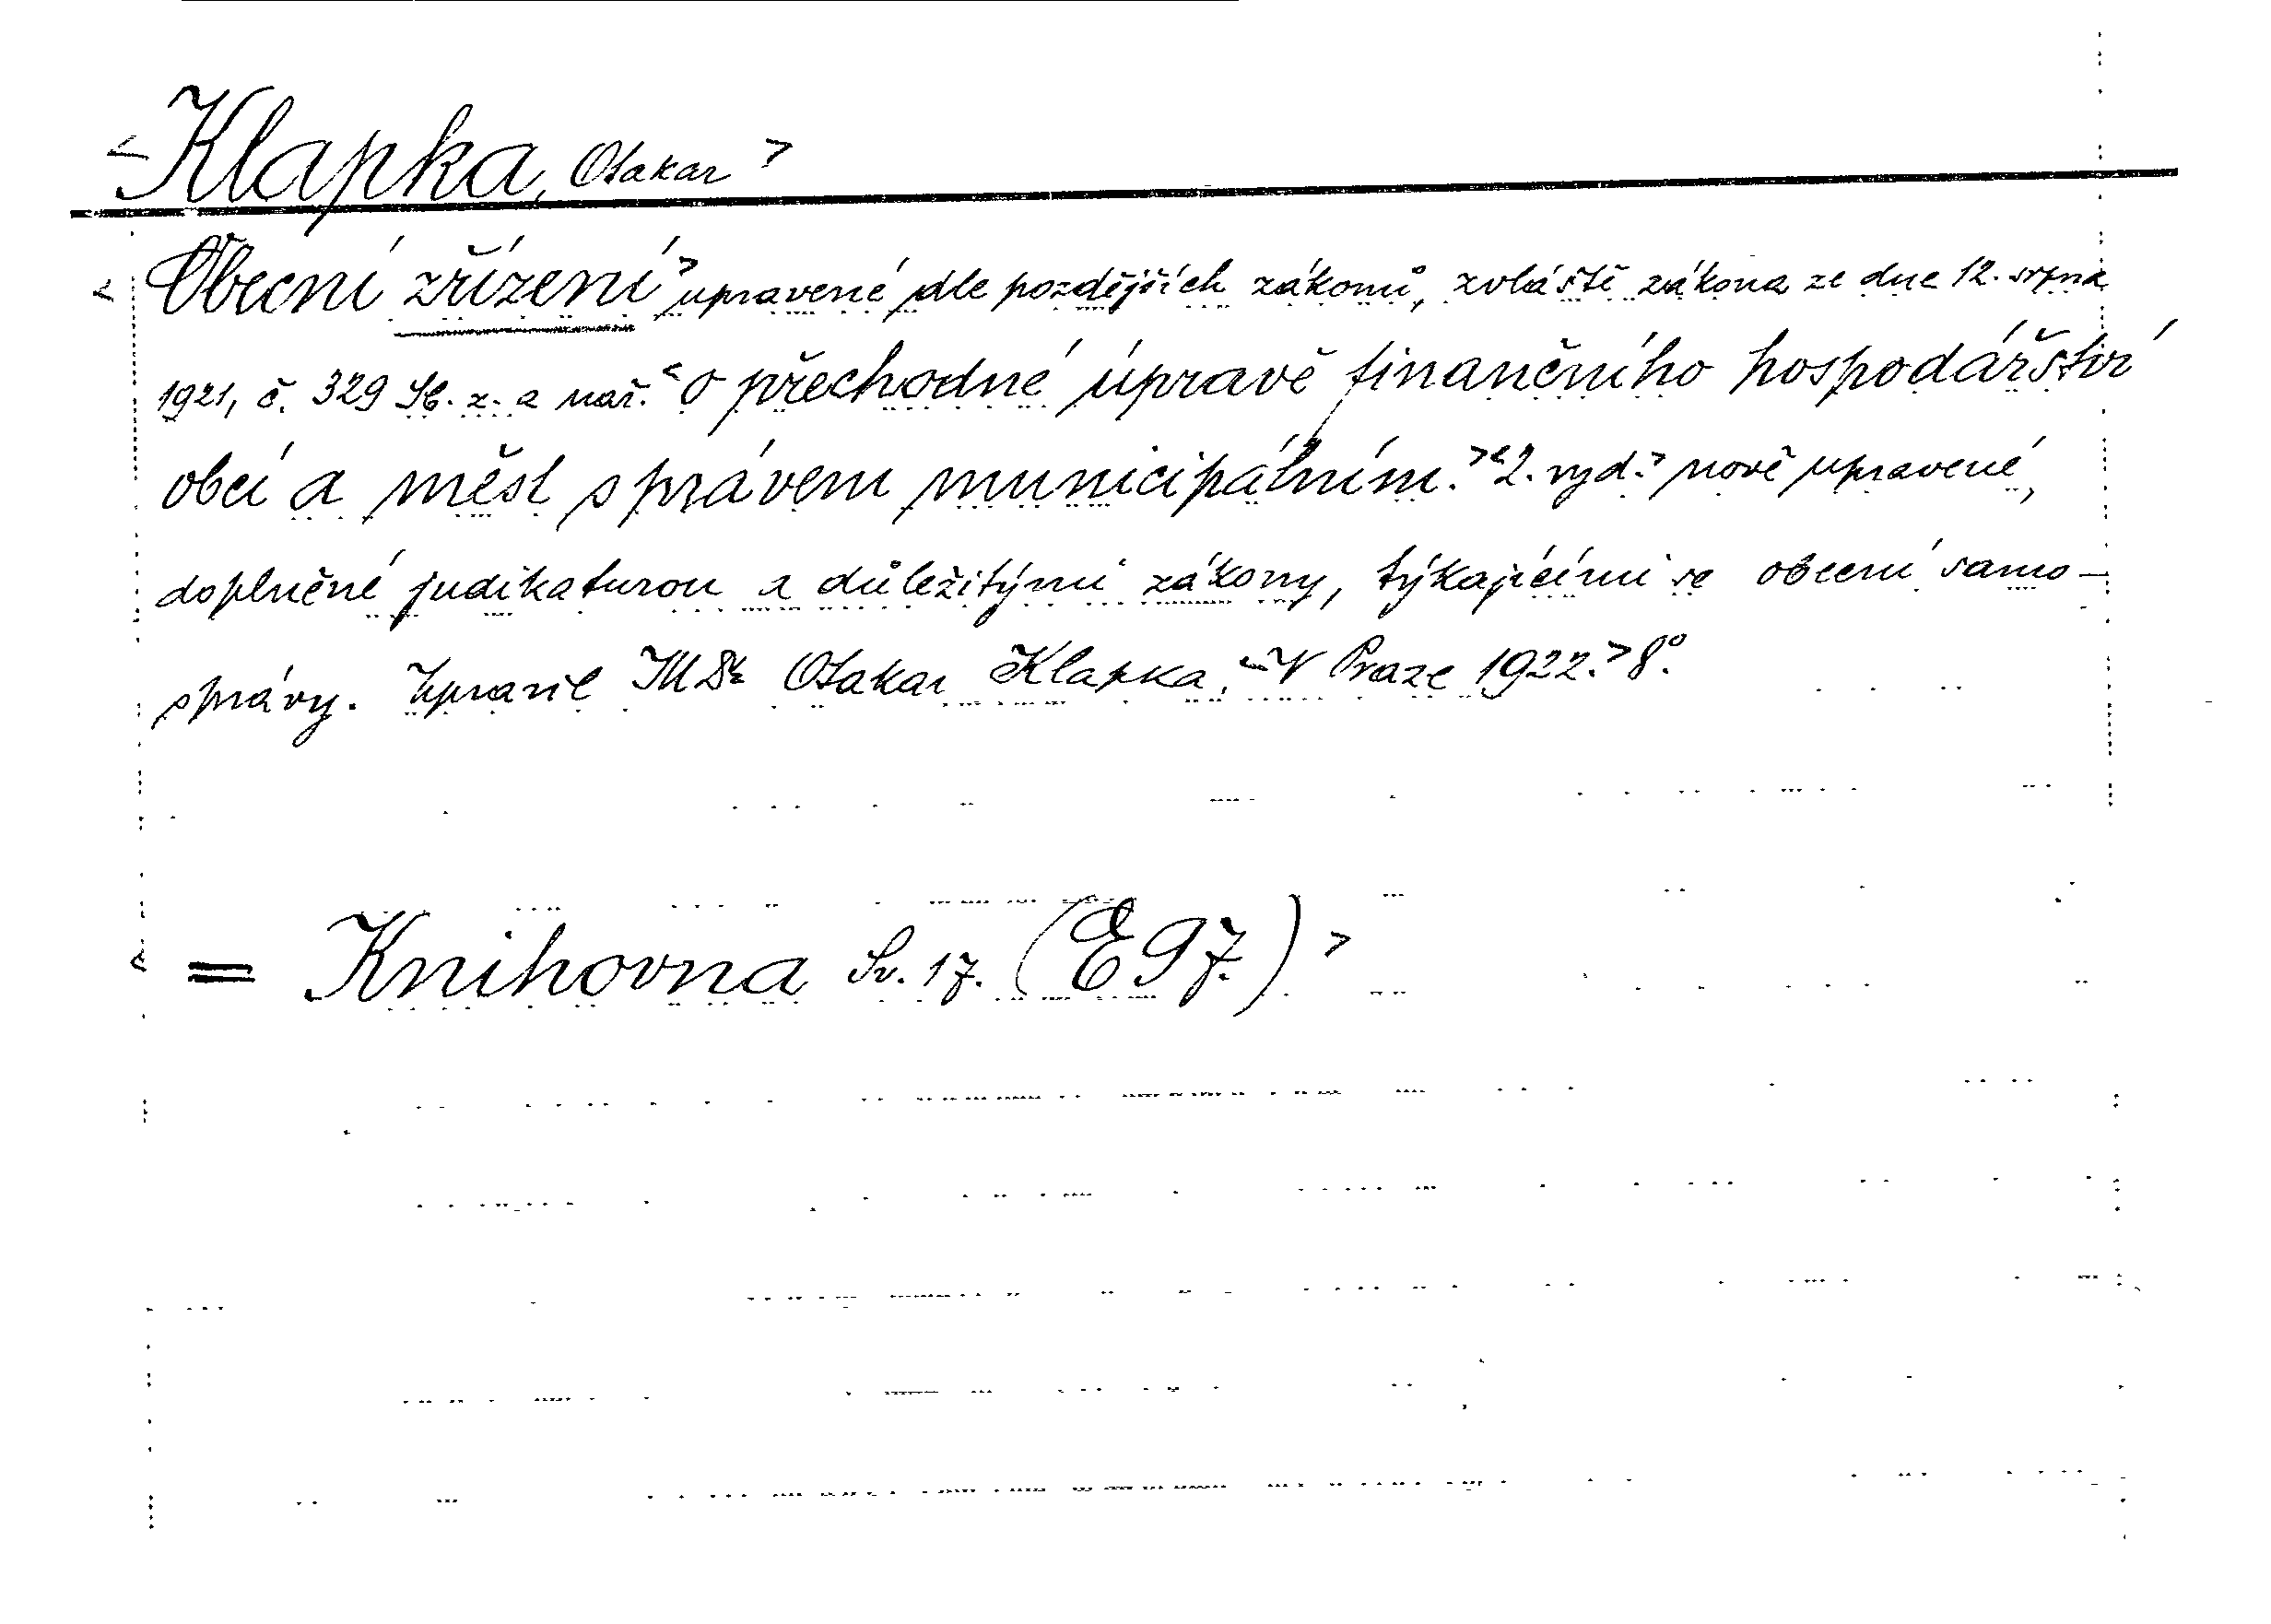 <Klapka, Otakar>
<Obecní zřízení> upravené dle pozdějších zákonů, zvláště zákona ze dne 12. srpna
1921, č. 329 Sb. z. a nař. <o přechodné úpravě finančního hospodářství
obcí a měst s právem municipálním.> <2. vyd.> nově upravené,
doplněné judikaturou a důležitými zákony, týkajícími se obecní samo-
správy. Upravil JUDr Otakar Klapka. <V Praze 1922.> 8°.
< = Knihovna Sv. 17. (E97.) >